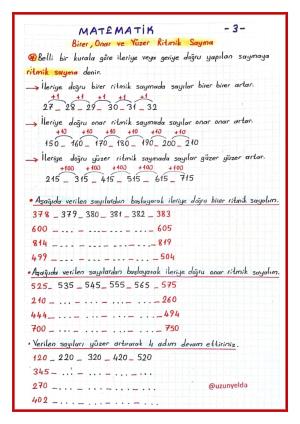 MATEMATİK -3-
Birer, Onar ve Yüzer Ritmik Sayma
Belli bir kurala göre ileriye veya geriye doğru yapılan saymaya
ritmik sayma denir.
→ İleriye doğru birer ritmik saymada sayılar birer birer artar.
+1 +1 +1 +1 +1
27 - 28 - 29 - 30 - 31 - 32
→ İleriye doğru onar ritmik saymada sayılar onar onar artar.
+10 +10 +10 +10 +10
150 - 160 - 170 - 180 - 190 - 200 - 210
→ İleriye doğru yüzer ritmik saymada sayılar yüzer yüzer artar.
+100 +100 +100 +100 +100
215 - 315 - 415 - 515 - 615 - 715
• Aşağıda verilen sayılardan başlayarak ileriye doğru birer ritmik sayalım.
378 - 379 - 380 - 381 - 382 - 383
600 - ... - ... - ... - ... - 605
814 - ... - ... - ... - ... - 819
499 - ... - ... - ... - ... - 504
• Aşağıda verilen sayılardan başlayarak ileriye doğru onar ritmik sayalım.
525 - 535 - 545 - 555 - 565 - 575
210 - ... - ... - ... - ... - 260
444 - ... - ... - ... - ... - 494
700 - ... - ... - ... - ... - 750
• Verilen sayıları yüzer artırarak 4 adım devam ettiriniz.
120 - 220 - 320 - 420 - 520
345 - ... - ... - ... - ...
270 - ... - ... - ... - ...
402 - ... - ... - ... - ...
@uzunyelda